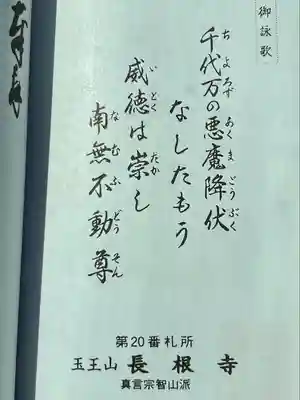 御詠歌
千代万の悪魔降伏
ちよろず あくまごうぶく
なしたもう
威徳は崇し
いとく たか
南無不動尊
なむふどうそん
第20番札所
玉王山 長根寺
真言宗智山派